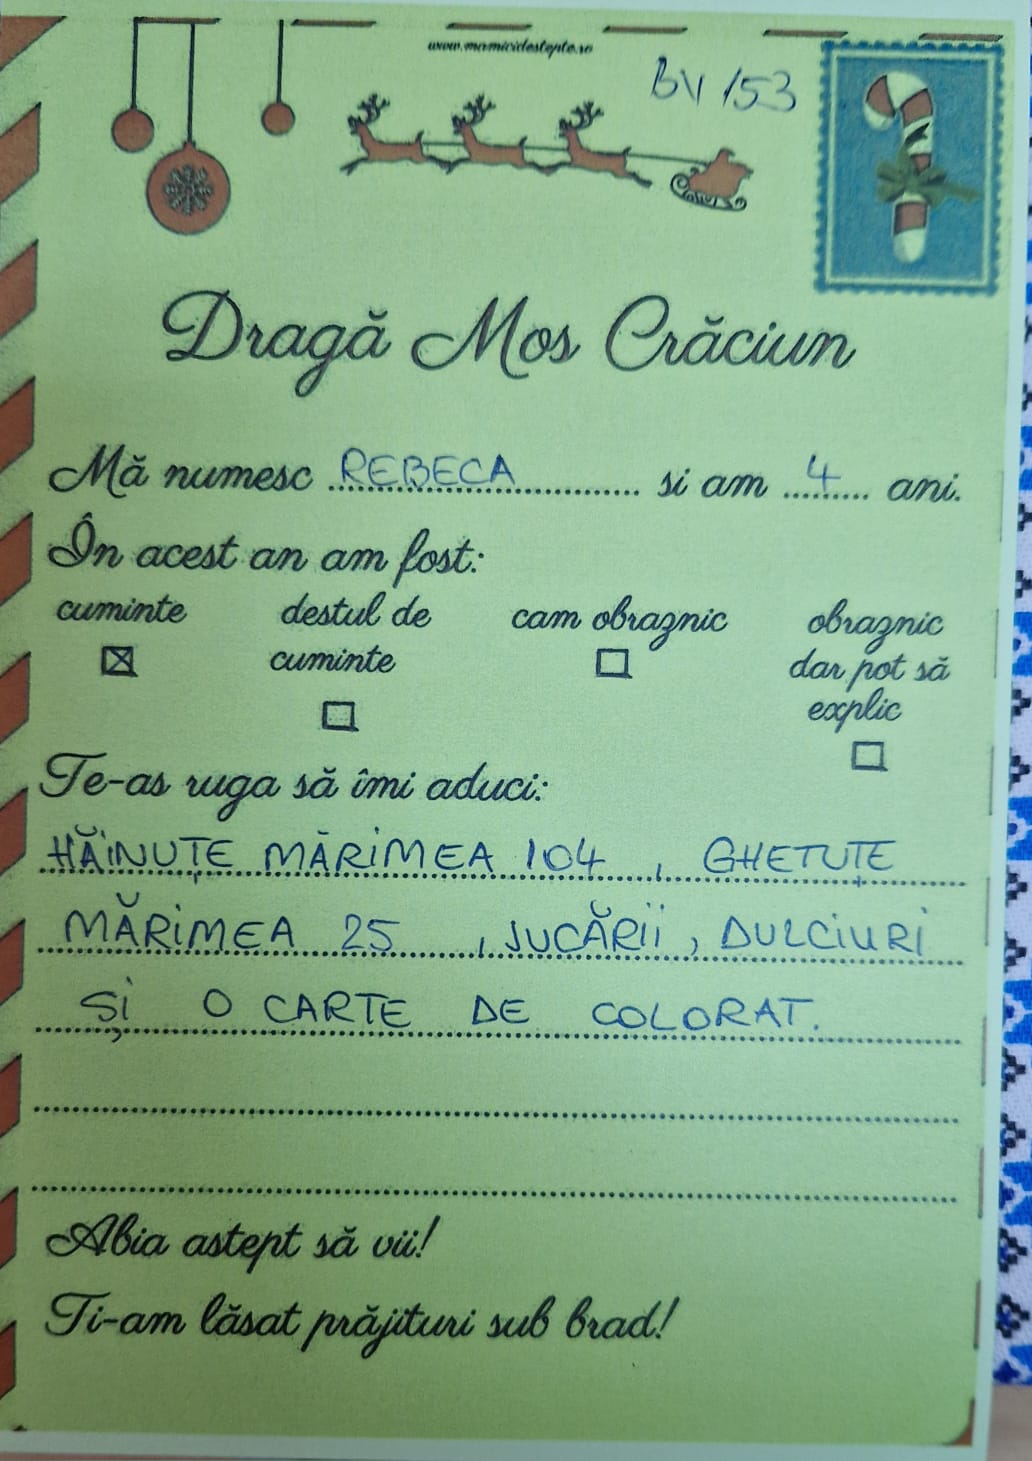 www.mamicidestepte.ro
BV 153
Dragă Mos Crăciun
Mă numesc REBECA si am 4 ani.
În acest an am fost:
cuminte destul de cuminte cam obraznic obraznic dar pot să explic
Te-as ruga să îmi aduci:
HĂINUȚE MĂRIMEA 104 , GHETUȚE
MĂRIMEA 25 , JUCĂRII , DULCIURI
ȘI O CARTE DE COLORAT.
Abia astept să vii!
Ti-am lăsat prăjituri sub brad!